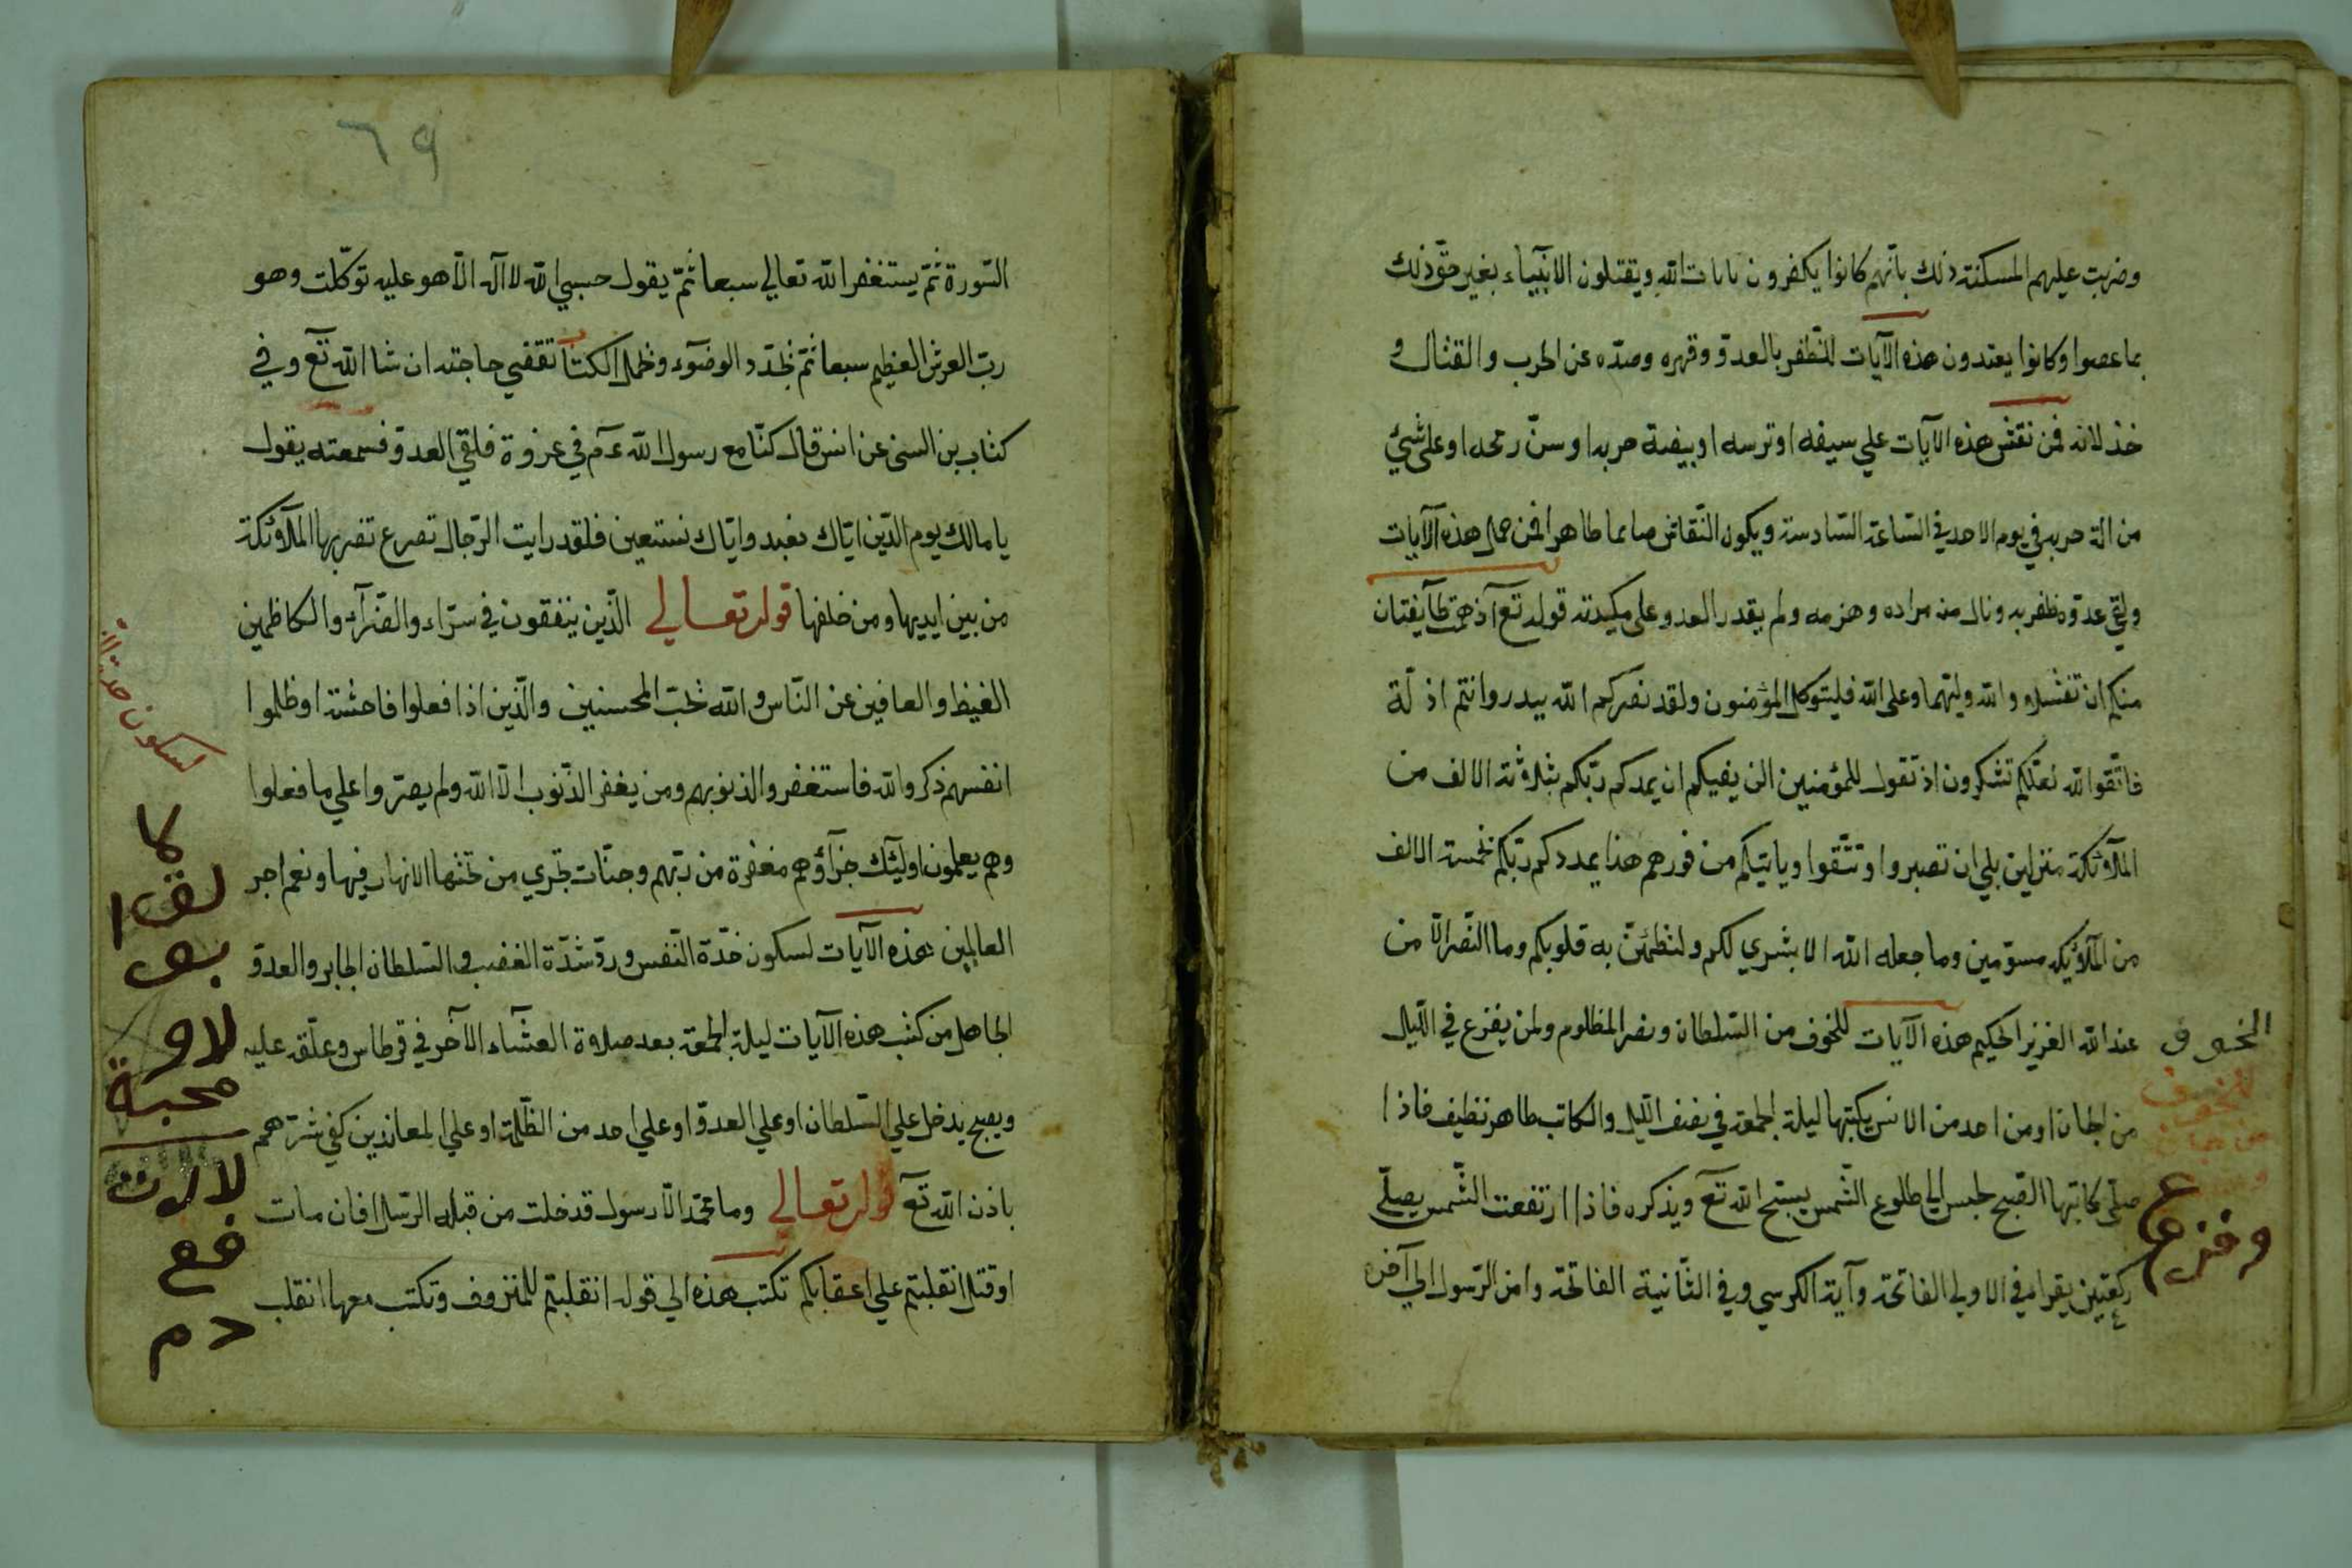 وضربت عليهم المسكنة ذلك بانّهم كانوا يكفرون بايات الله ويقتلون الانبيآء بغير حقّ ذلك
بما عصوا وكانوا يعتدون هذه الآيات للظفر بالعدوّ وقهره وصدّه عن الحرب والقتال و
خذلانه فمن نقش هذه الآيات علي سيفه او ترسه او بيضة حربه او سنّ رمحه او علي شئ
من الة حربه في يوم الاحد في السّاعة السّادسة ويكون النّقاش صايما طاهرا فمن حمل هذه الآيات
ولقي عدوّه ظفر به ونال منه مراده وهزمه ولم يقدر العدو علي مكيدته قوله تعۤ اذ همّت طآيفتان
منكم ان تفشلا والله وليّهما وعلي الله فليتوكل المؤمنون ولقد نصركم الله ببدر وانتم اذلّة
فاتّقوا الله لعلّكم تشكرون اذ تقول للمؤمنين الن يكفيكم ان يمدكم ربّكم بثلاثة الالف من
الملآئكة منزلين بلي ان تصبروا وتتّقوا وياتيكم من فورهم هذا يمددكم ربّكم بخمسة الالف
من الملآئكه مسوّمين وما جعله الله الا بشري لكم ولتطمئنّ به قلوبكم وما النّصر الّا من
عند الله العزيز الحكيم هذه الآيات للخوف من السّلطان ونصر المظلوم ولمن يفزع في اللّيل
من الجان او من احد من الانس يكتبها ليلة الجمعة في نصف اللّيل والكاتب طاهر نظيف فاذا
صلّي كاتبها الصّبح جلس الي طلوع الشّمس يسبّح الله تعۤ ويذكره فاذا ارتفعت الشّمس يصلّي
ركعتين يقرا في الاولي الفاتحة وآية الكرسي وفي الثّانية الفاتحة وامن الرّسول الي آخره
الخوف
للخوف
من
وفزع
٦٩
السّورة ثمّ يستغفر الله تعالي سبعا ثمّ يقول حسبي الله لا اله الّا هو عليه توكّلت وهو
ربّ العرش العظيم سبعا ثمّ يجدّد الوضوء وحمل الكتاب تقضي حاجته ان شا الله تعۤ وفي
كتاب بن السني عن انس قال كنّا مع رسول الله عۤم في غزوة فلقي العدوّ فسمعته يقول
يا مالك يوم الدّين ايّاك نعبد وايّاك نستعين فلقد رايت الرّجال تصرع تضربها الملآئكة
من بين ايديها ومن خلفها قوله تعالي الّذين ينفقون في سرّاء والضّرآء والكاظمين
الغيظ والعافين عن النّاس والله يحبّ المحسنين والّذين اذا فعلوا فاحشة او ظلموا
انفسهم ذكروا الله فاستغفروا لذنوبهم ومن يغفر الذّنوب الّا الله ولم يصرّوا علي ما فعلوا
وهم يعلمون اوليٓك جزآؤهم مغفرة من ربّهم وجنّات تجري من تحتها الانهار فيها ونعم اجر
العالمين هذه الآيات لسكون حدّة النّفس وردّ شدّة الغضب في السّلطان الجابر والعدوّ
الجاهل من كتب هذه الآيات ليلة الجمعة بعد صلاوة العشآء الآخر في قرطاس وعلّقه عليه
ويصبح يدخل علي السّلطان او علي العدوّ او علي احد من الظّلمة او علي المعاندين كفي شرّهم
باذن الله تعۤ قوله تعالي وما محمّد الّا رسول قد خلت من قبله الرّسل افان مات
او قتل انقلبتم علي اعقابكم تكتب هذه الي قوله انقلبتم للمنزوف وتكتب معها انقلب
لسكون حدة
محبة
دم